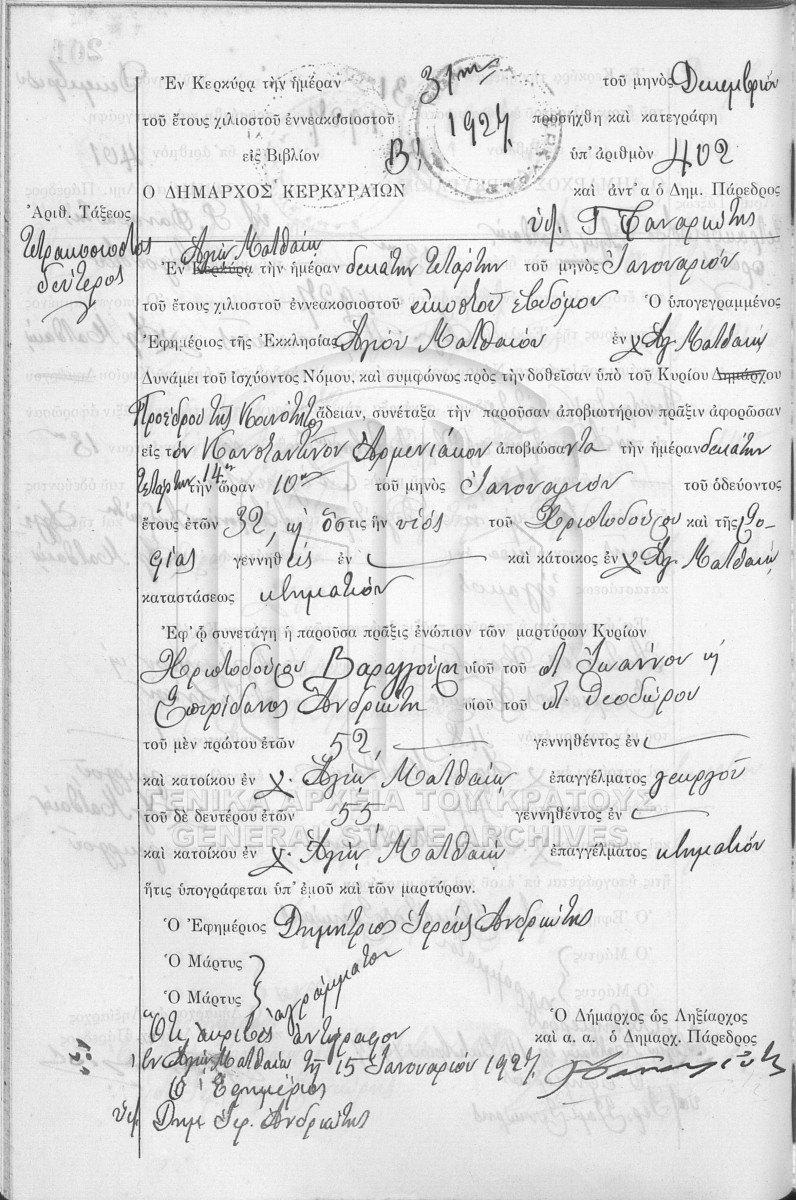 Ἐν Κερκύρᾳ τὴν ἡμέραν 31ην τοῦ μηνὸς Δεκεμβρίου
τοῦ ἔτους χιλιοστοῦ ἐννεακοσιοστοῦ 1927 προσήχθη καὶ κατεγράφη
εἰς Βιβλίον Β! ὑπ' ἀριθμὸν 402
Ο ΔΗΜΑΡΧΟΣ ΚΕΡΚΥΡΑΙΩΝ καὶ ἀντ' α ὁ Δημ. Πάρεδρος
Ἀριθ. Τάξεως
ὑπ. Γ Φαναριώτης
τετρακοσιοστὸς
δεύτερος
Ἁγίῳ Ματθαίῳ
Ἐν Κερκύρᾳ τὴν ἡμέραν δεκάτην τετάρτην τοῦ μηνὸς Ἰανουαρίου
τοῦ ἔτους χιλιοστοῦ ἐννεακοσιοστοῦ εἰκοστοῦ ἑβδόμου Ὁ ὑπογεγραμμένος
Ἐφημέριος τῆς Ἐκκλησίας Ἁγίου Ματθαίου ἐν χ Ἁγ. Ματθαίῳ
Δυνάμει τοῦ ἰσχύοντος Νόμου, καὶ συμφώνως πρὸς τὴν δοθεῖσαν ὑπὸ τοῦ Κυρίου Δημάρχου
Προέδρου τῆς Κοινότητος ἄδειαν, συνέταξα τὴν παροῦσαν ἀποβιωτήριον πρᾶξιν ἀφορῶσαν
εἰς τὸν Κωνσταντῖνον Ἀρμενιάκον ἀποβιώσαντα τὴν ἡμέραν δεκάτην
τετάρτην 14ην τὴν ὥραν 10ην τοῦ μηνὸς Ἰανουαρίου τοῦ ὁδεύοντος
ἔτους ἐτῶν 32, ὅστις ἦν υἱὸς τοῦ Χριστοδούλου καὶ τῆς Σο-
φίας γεννηθεὶς ἐν καὶ κάτοικος ἐν χ Ἁγ. Ματθαίῳ
καταστάσεως κτηματίου
Ἐφ' ᾧ συνετάγη ἡ παροῦσα πρᾶξις ἐνώπιον τῶν μαρτύρων Κυρίων
Χριστοδούλου Βαραγγούλη υἱοῦ τοῦ Ἰωάννου
Σπυρίδωνος Ἀνδριώτη υἱοῦ τοῦ Θεοδώρου
τοῦ μὲν πρώτου ἐτῶν 52, γεννηθέντος ἐν
καὶ κατοίκου ἐν χ. Ἁγίῳ Ματθαίῳ ἐπαγγέλματος γεωργοῦ
ΓΕΝΙΚΑ ΑΡΧΕΙΑ ΤΟΥ ΚΡΑΤΟΥΣ
τοῦ δὲ δευτέρου ἐτῶν 55 γεννηθέντος ἐν
GENERAL STATE ARCHIVES
καὶ κατοίκου ἐν χ. Ἁγίῳ Ματθαίῳ ἐπαγγέλματος κτηματίου
ἥτις ὑπογράφεται ὑπ' ἐμοῦ καὶ τῶν μαρτύρων.
Ὁ Ἐφημέριος Δημήτριος Ἱερεὺς Ἀνδριώτης
Ὁ Μάρτυς
Ὁ Μάρτυς ἀγράμματοι
Ὅτι ἀκριβὲς ἀντίγραφον
Ὁ Δήμαρχος ὡς Ληξίαρχος
καὶ α. α. ὁ Δημαρχ. Πάρεδρος
Ἐν Ἁγίῳ Ματθαίῳ τῇ 15 Ἰανουαρίου 1927
Ὁ Ἐφημέριος
ὑπ. Δημ Ἱερ. Ἀνδριώτης